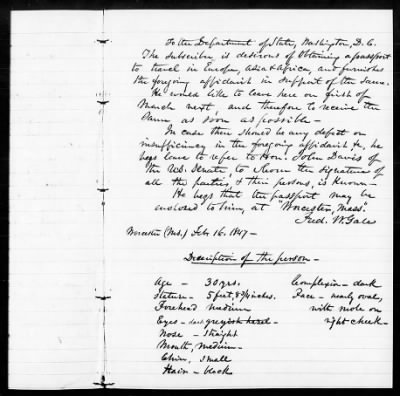 To the Department of State, Washington, D. C.
The Subscriber, is desirous of obtaining a passport
to travel in Europe, Asia & Africa, and furnishes
the foregoing affidavit in support of the same.
He would like to leave here on first of
March next, and therefore to receive the
same as soon as possible -
In case there should be any defect or
insufficiency in the foregoing affidavit &c, he
begs leave to refer to Hon. John Davis of
the U.S. Senate, to whom the signatures of
all the parties, & their persons, is known -
He begs that the passport may be
enclosed to him, at "Worcester, Mass."
Fred. W. Gale
Worcester (Ms.) Feb 16. 1847 -
Description of the person -
Age - 30 yrs.
Stature - 5 feet, 8 3/4 inches.
Forehead medium
Eyes - dark greyish hazel -
Nose - straight
Mouth, medium -
Chin, small
Hair - black
Complexion - dark
Face - nearly oval,
with mole on
right cheek -